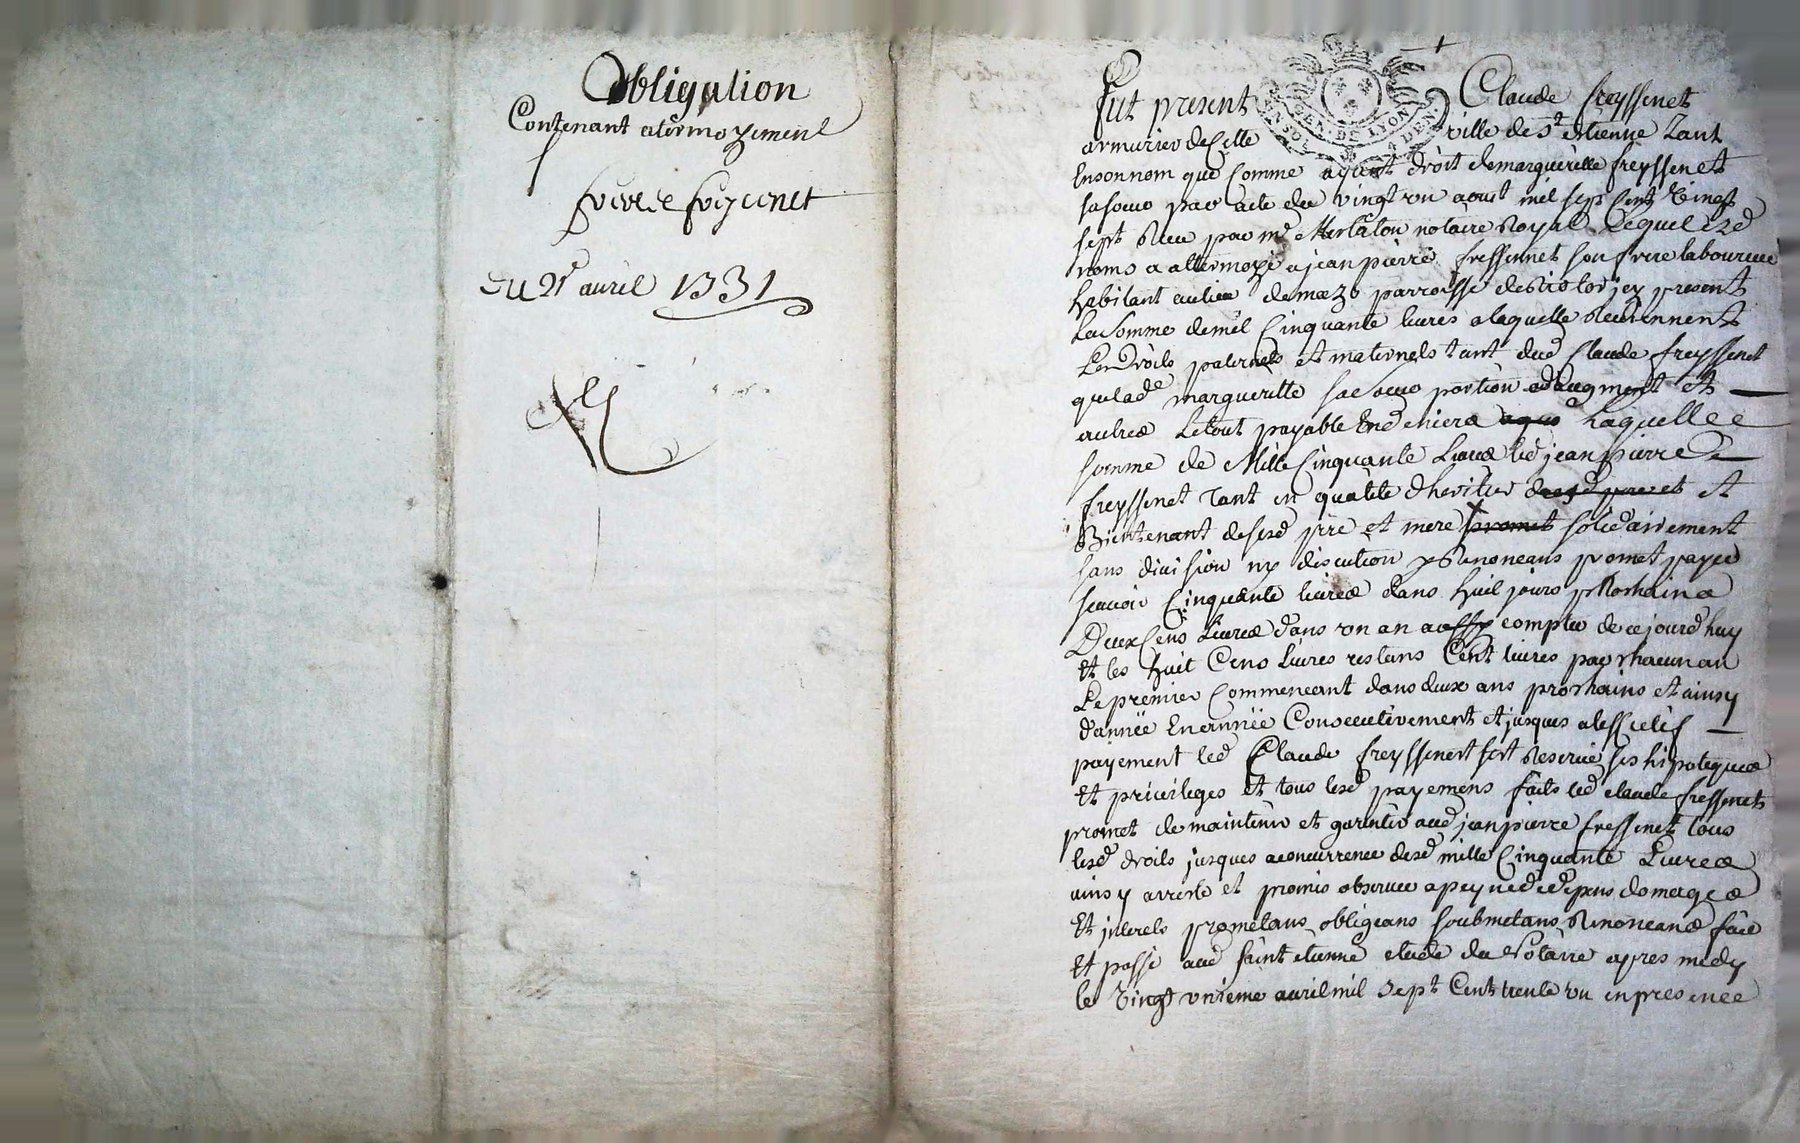 Obligation
Contenant atermoyement
frere freycenet
Du 21 auril 1731
Fut present Claude freyssenet
GEN. DE LYON
armurier de cette ville de St etienne tant
en son nom que comme ayant droit de margueritte freyssenet
sa soeur par acte du vingt un aoust mil sept cent vingt
sept Receu par me notaire Royal Lequel esd
noms a attermoyé a jean pierre fressennet son frere laboureur
habitant au lieu de parroisse de jcy present
La Somme de mil Cinquante liures a laquelle Reuiennent
Les Droits paternels et maternels tant dud Claude freyssenet
que lade margueritte sa soeur portion et
autres Le tout payable Laquelle
somme de Mille Cinquante Liures led jean pierre
freyssenet Tant en qualité dheritier et
Bientenant de sesd pere et mere promet solidairement
sans diuision ny discution y Renonceans promet payer
scauoir Cinquante liures dans huit jours prochains
Deux Cens Liures dans un an a compter de ce jourdhuy
et les huit Cens Liures restans Cent liures par chacun an
Le premier Commencant dans deux ans prochains et ainsy
dannëe En annëe Consecutivement et jusques a leffectif
payement led Claude freyssenet sest Reserué ses hipoteques
et priuileges et tous lesd payemens faits led claude fressenet
promet de maintenir et garentir aud jean pierre fressenet tous
lesd droits jusques a concurrence desd mille Cinquante Liures
ainsy arresté et promis obseruer a peyne de depens domages
Et jnterets prometans obligeans soubmetans Renonceans fait
Et passé aud saint etienne etude du Notaire apres midy
le vingt unieme auril mil sept Cent trente un en presence